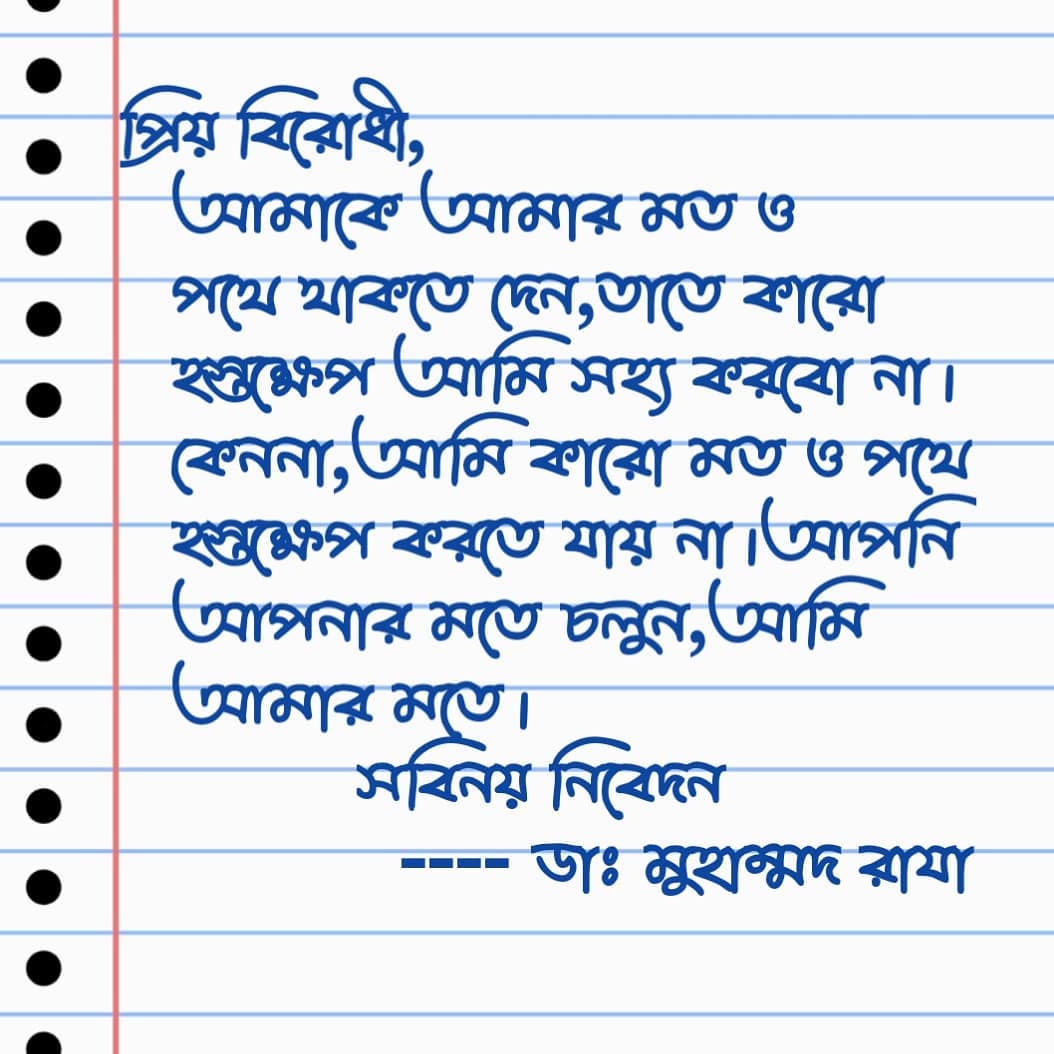 প্রিয় বিরোধী,
আমাকে আমার মত ও
পথে থাকতে দেন,তাতে কারো
হস্তক্ষেপ আমি সহ্য করবো না।
কেননা,আমি কারো মত ও পথে
হস্তক্ষেপ করতে যায় না।আপনি
আপনার মতে চলুন,আমি
আমার মতে।
সবিনয় নিবেদন
---- ডাঃ মুহাম্মদ রাযা